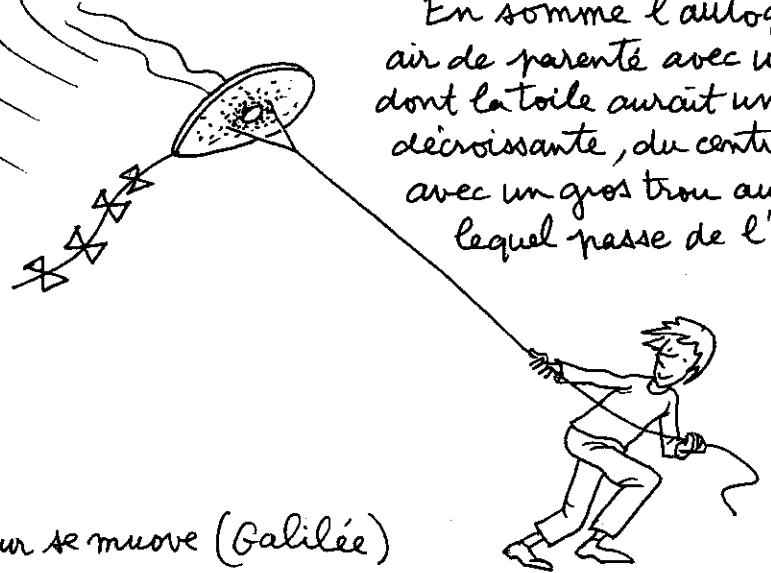 En somme l'autog
air de parenté avec u
dont la toile aurait un
décroissante, du cent
avec un gros trou au
lequel passe de l'
ur se muove (Galilée)